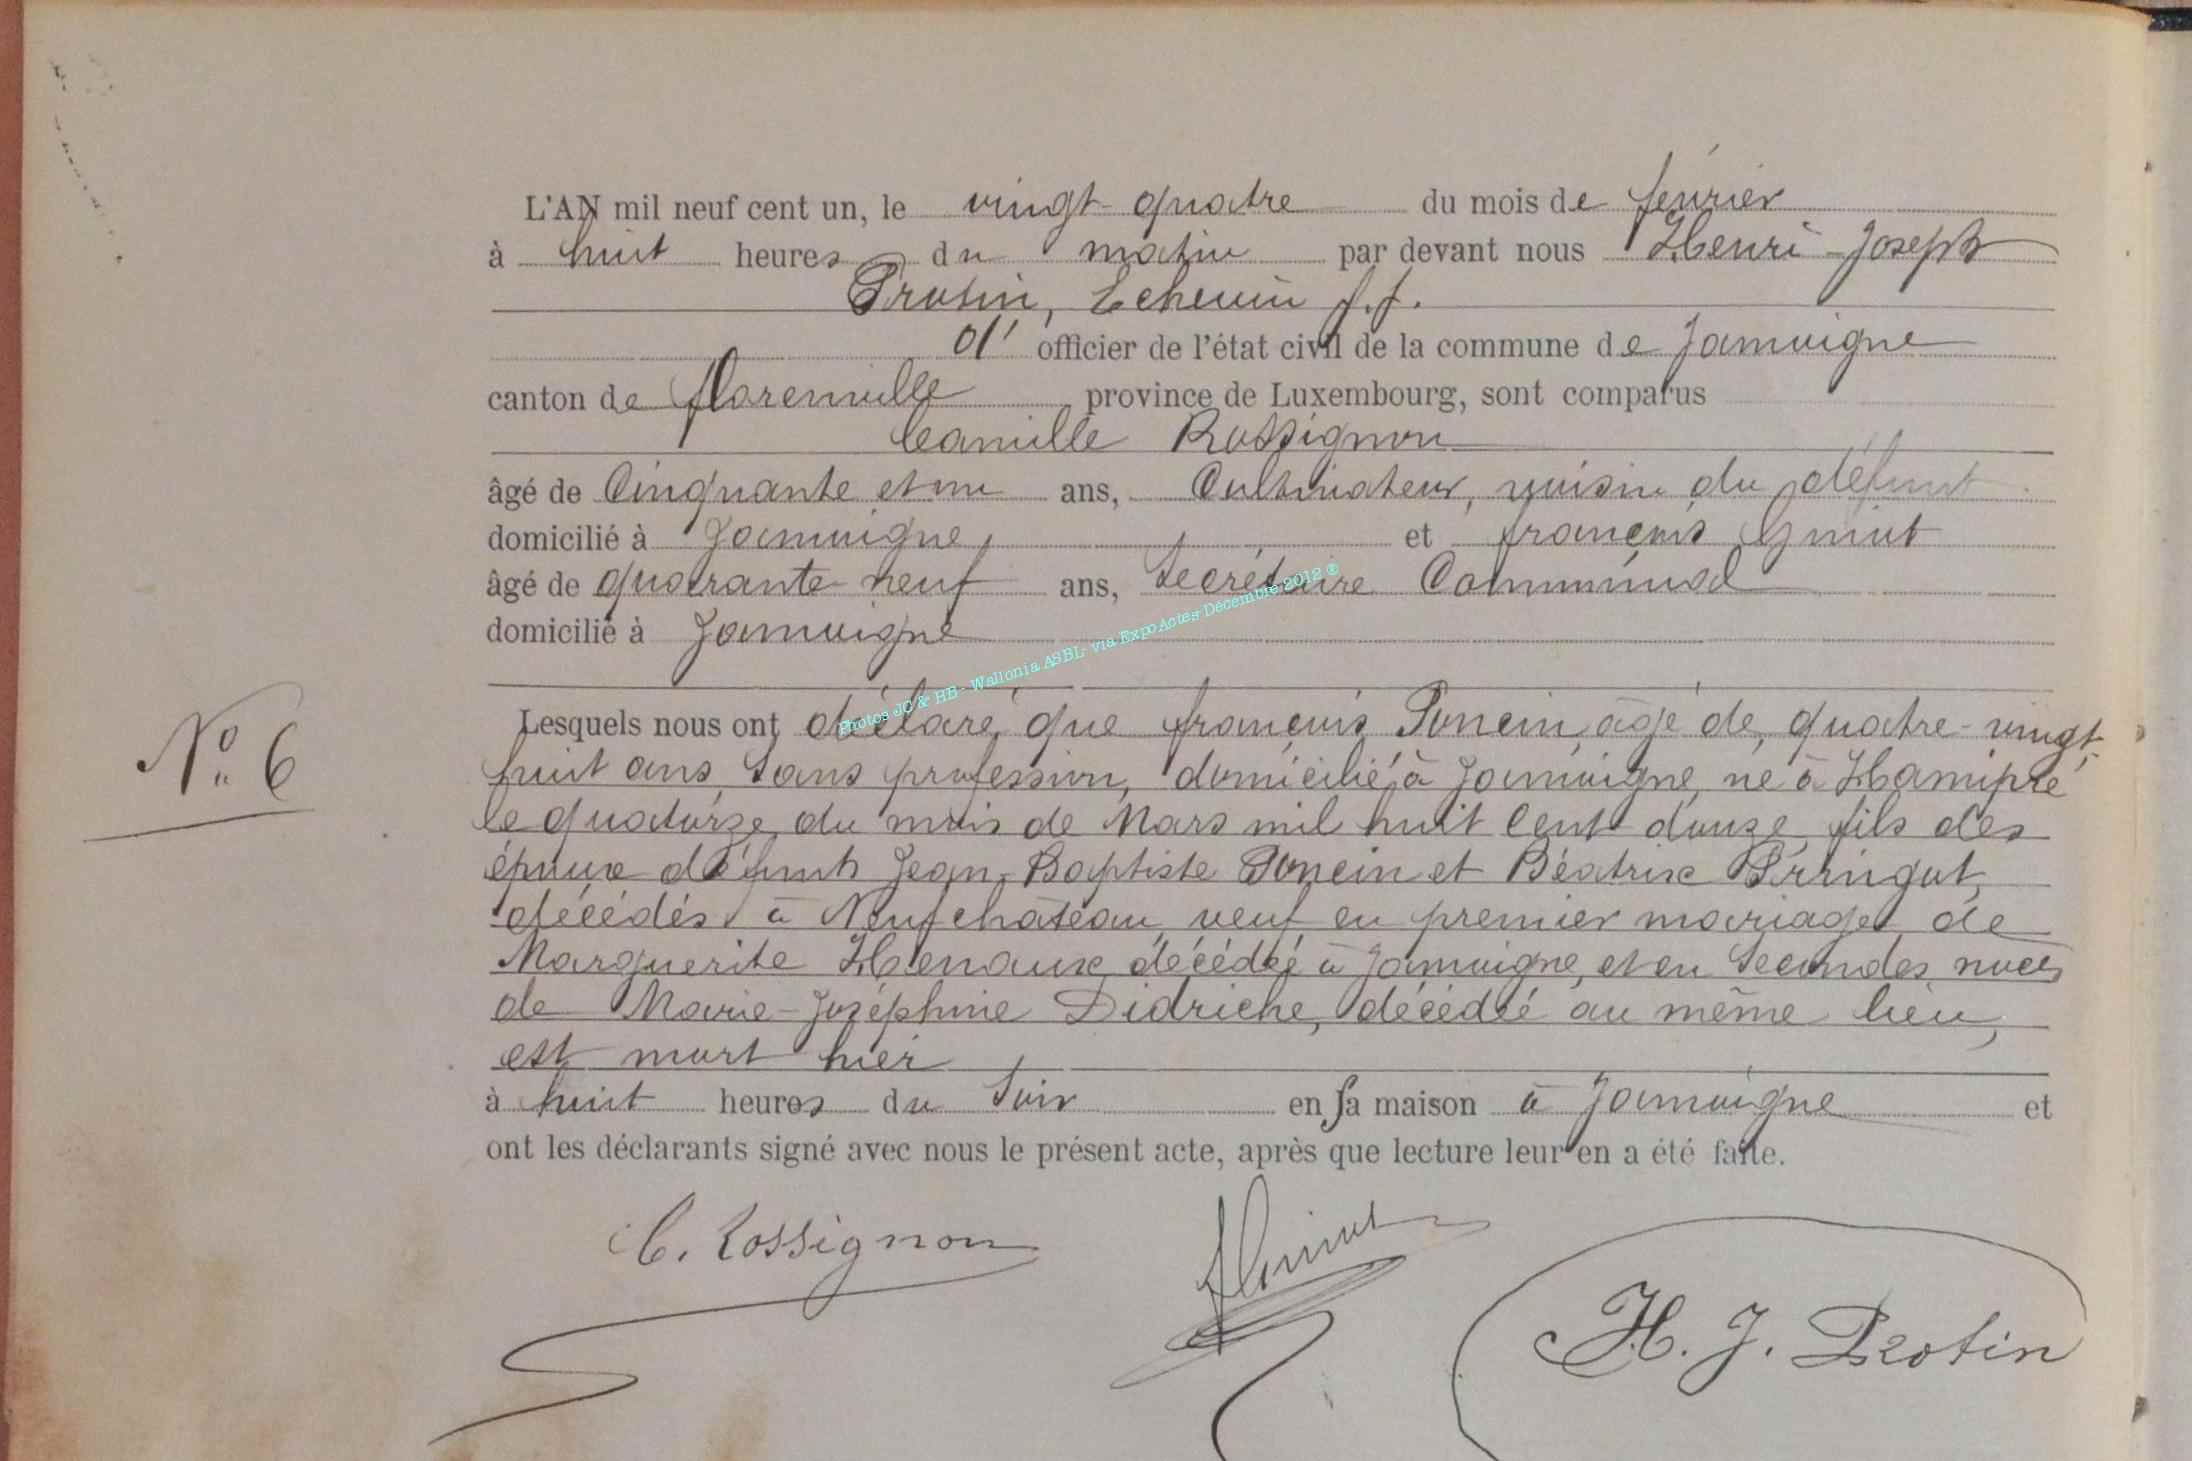 L'AN mil neuf cent un, le vingt-quatre du mois de février
à huit heures du matin par devant nous Henri-Joseph
Protin, Echevin f.f.
d' officier de l'état civil de la commune de Jamoigne
canton de florenville province de Luxembourg, sont comparus
Camille Rossignon
âgé de Cinquante et un ans, Cultivateur, voisin du défunt
domicilié à Jamoigne, et françois
âgé de quarante-neuf ans, Secrétaire Communal
domicilié à Jamoigne
Photos JC & HB - Wallonia ASBL- via ExpoActes Décembre 2012 ®
N° 6
Lesquels nous ont déclaré que françois Poncin, âgé de quatre-vingt-
huit ans, sans profession, domicilié à Jamoigne, né à Hamipré
le quatorze du mois de Mars mil huit cent douze, fils des
époux défunts Jean-Baptiste Poncin et Béatrix
décédés à Neufchâteau, veuf en premier mariage de
Marguerite Henaux, décédée à Jamoigne, et en secondes noces
de Marie-Joséphine Didriche, décédée au même lieu,
est mort hier
à huit heures du soir en sa maison à Jamoigne et
ont les déclarants signé avec nous le présent acte, après que lecture leur en a été faite.
C. Rossignon
H. J. Protin